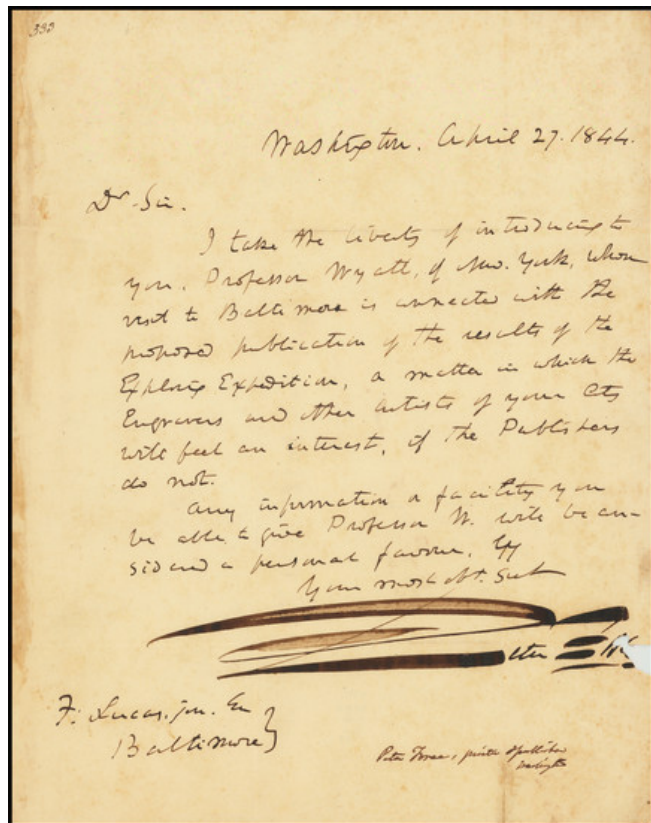 333
Washington. April 27. 1844.
Dr. Sir.
I take the liberty of introducing to
you, Professor Wyatt, of New. York, whose
visit to Baltimore is connected with the
proposed publication of the results of the
Exploring Expedition, a matter in which the
Engravers and other artists of your City
will feel an interest, if the Publishers
do not.
Any information or facility you
be able to give Professor W. will be con-
sidered a personal favour, by
Your most obt. Sevt
Peter
F. Lucas. jun. Esq
Baltimore
Peter Force, printer & publisher
Washington